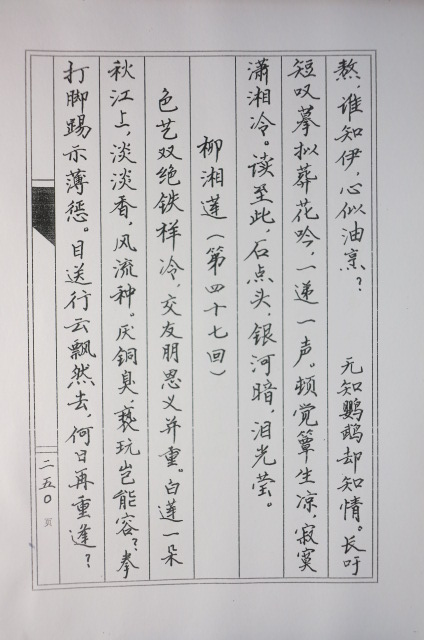 熬，谁知伊，心似油烹？　　无知鹦鹉却知情。长吁
短叹摹拟葬花吟，一递一声。顿觉簟生凉，寂寞
潇湘冷。读至此，石点头，银河暗，泪光莹。
柳湘莲（第四十七回）
色艺双绝铁样冷，交友朋恩义并重。白莲一朵
秋江上，淡淡香，风流种。厌铜臭，亵玩岂能容？拳
打脚踢示薄惩。目送行云飘然去，何日再重逢？
二五〇页